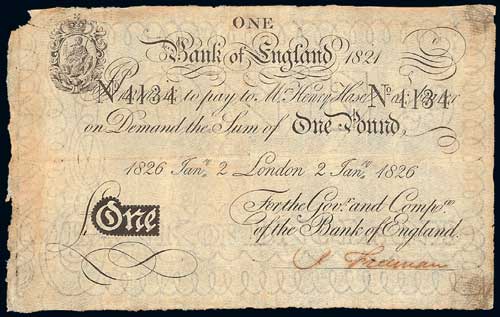 ONE
Bank of England 1821
I Promise to pay to Mr. Henry Hase or Bearer
No. 4134 No. 4134
on Demand the Sum of One Pound,
1826 Jany. 2 London 2 Jany. 1826
For the Govr. and Compa. of the Bank of England.
£One
J Freeman